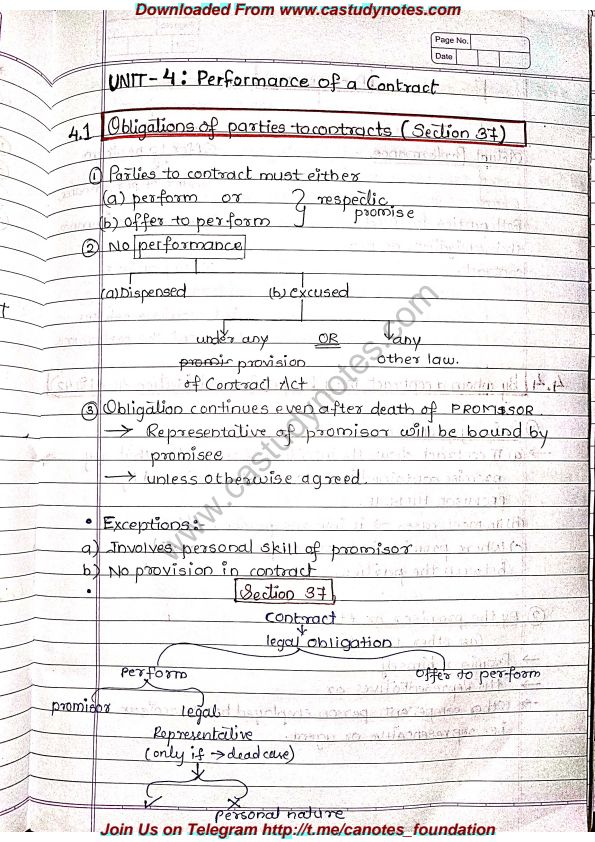 Downloaded From www.castudynotes.com
Page No.
Date
UNIT-4: Performance of a Contract
4.1 Obligations of parties to contracts (Section 37)
① Parties to contract must either
(a) perform or } respectic
(b) offer to perform promise
② No performance
(a) Dispensed (b) excused
under any OR any
promis provision other law.
of Contract Act
③ Obligation continues even after death of PROMISSOR
→ Representative of promisor will be bound by
promisee
→ unless otherwise agreed.
• Exceptions:-
a) Involves personal skill of promisor
b) No provision in contract
• Section 37
Contract
legal obligation
Perform Offer to perform
promisor legal
Representative
(only if → dead case)
✓ ✗
personal nature
www.castudynotes.com
Join Us on Telegram http://t.me/canotes_foundation